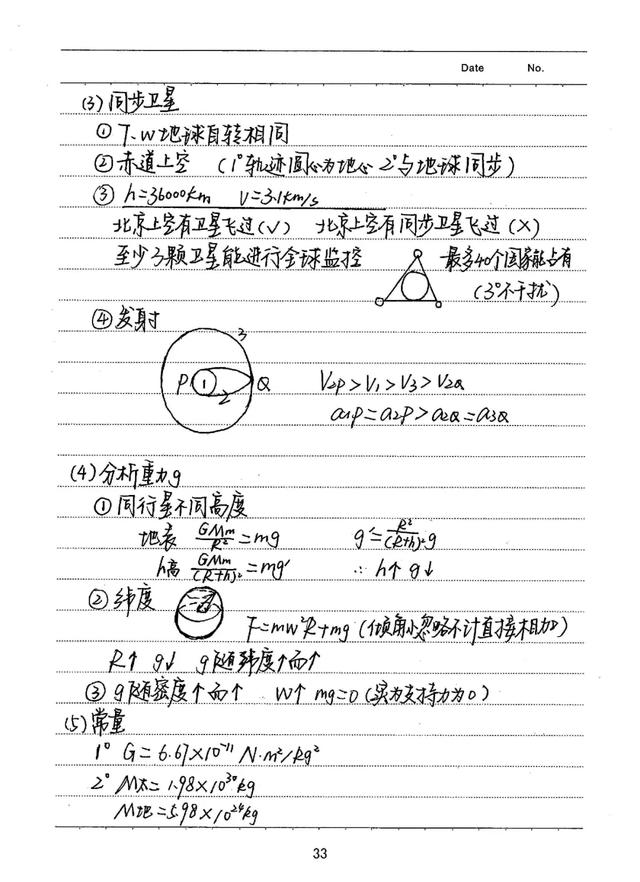 Date No.
(3) 同步卫星
① T、w地球自转相同
② 赤道上空 (1°轨迹圆心为地心 2°与地球同步)
③ h=36000km V=3.1km/s
北京上空有卫星飞过(√) 北京上空有同步卫星飞过(×)
至少3颗卫星能进行全球监控 最多40个国家能占有
(3°不干扰)
④ 发射
3
P 1 Q
2
V2P>V1>V3>V2Q
a1P=a2P>a2Q=a3Q
(4) 分析重力g
① 同行星不同高度
地表 GMm/R²=mg g'=R²/(R+h)²g
h高 GMm/(R+h)²=mg' ∴ h↑ g↓
② 纬度
F=mw²R+mg (倾角小忽略不计直接相加)
R↑ g↓ g随纬度↑而↑
③ g随密度↑而↑ w↑ mg=0 (实为支持力为0)
(5) 常量
1° G=6.67×10⁻¹¹ N·m²/kg²
2° M太=1.98×10³⁰kg
M地=5.98×10²⁴kg
33